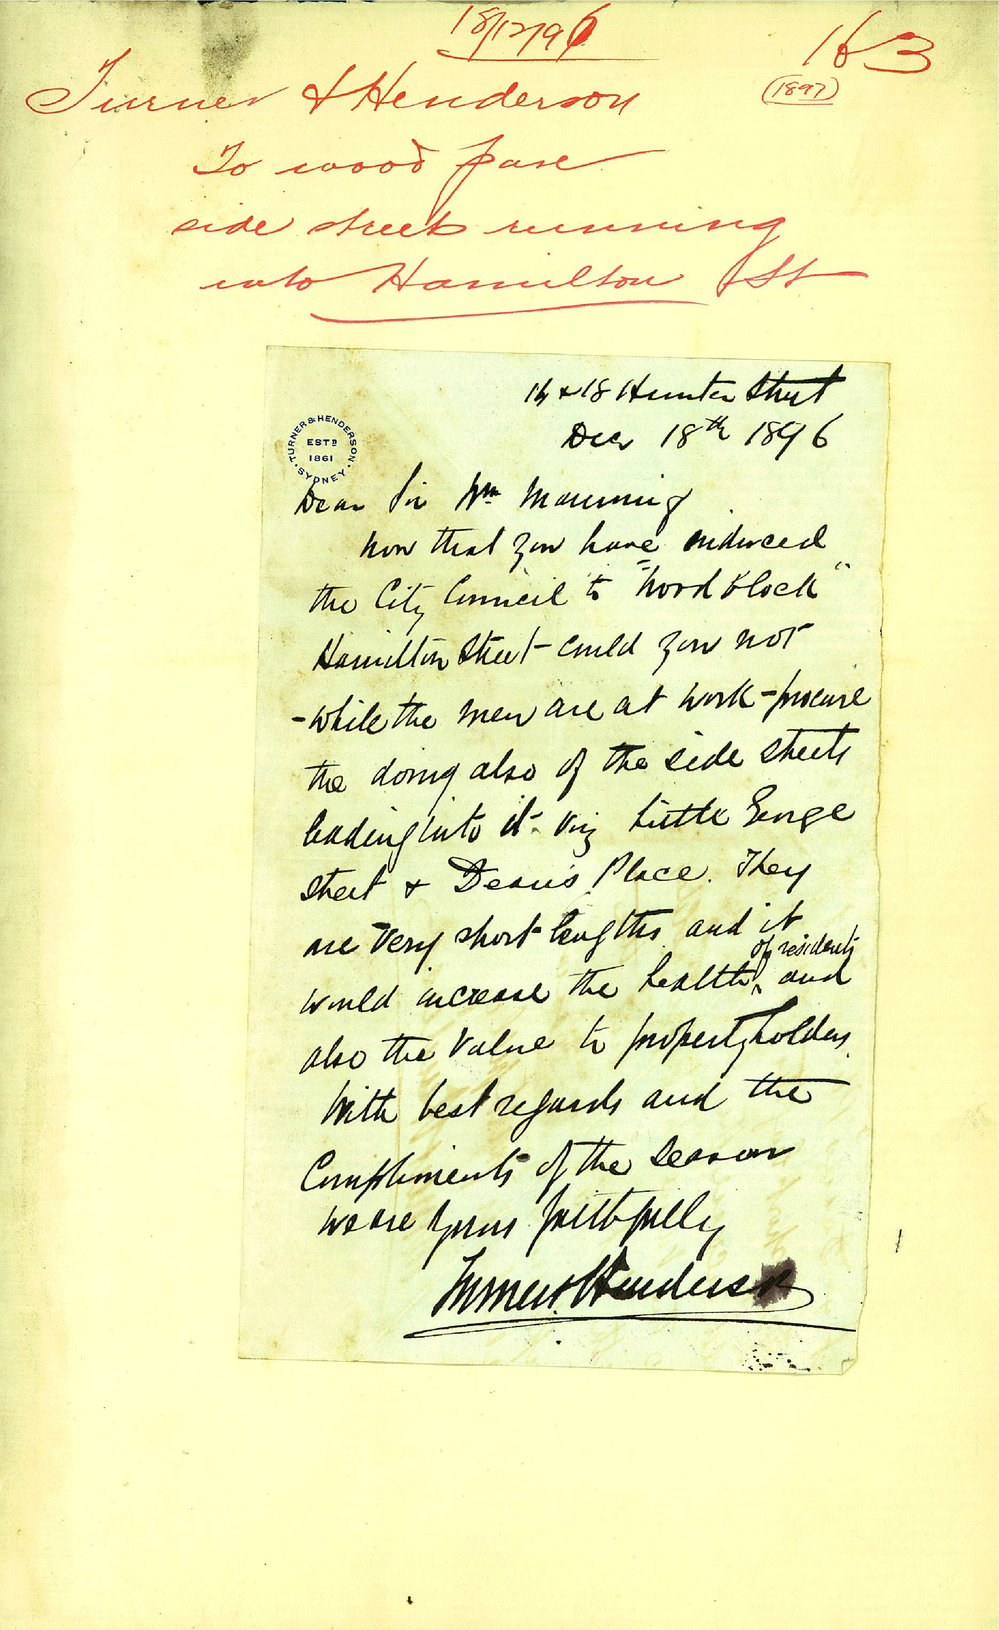 18/12/96
163
(1897)
Turner & Henderson
To wood pave
side streets running
into Hamilton St
16 & 18 Hunter Street
Decr 18th 1896
TURNER & HENDERSON
ESTD
1861
SYDNEY
Dear Sir Wm Manning
Now that you have induced
the City Council to "wood block"
Hamilton Street - could you not
- while the men are at work - procure
the doing also of the side streets
leading into it - viz Little George
Street & Dean's Place. They
are very short lengths and it
would increase the health of residents and
also the value to property holders.
With best regards and the
Compliments of the Season
we are yours faithfully
Turner & Henderson